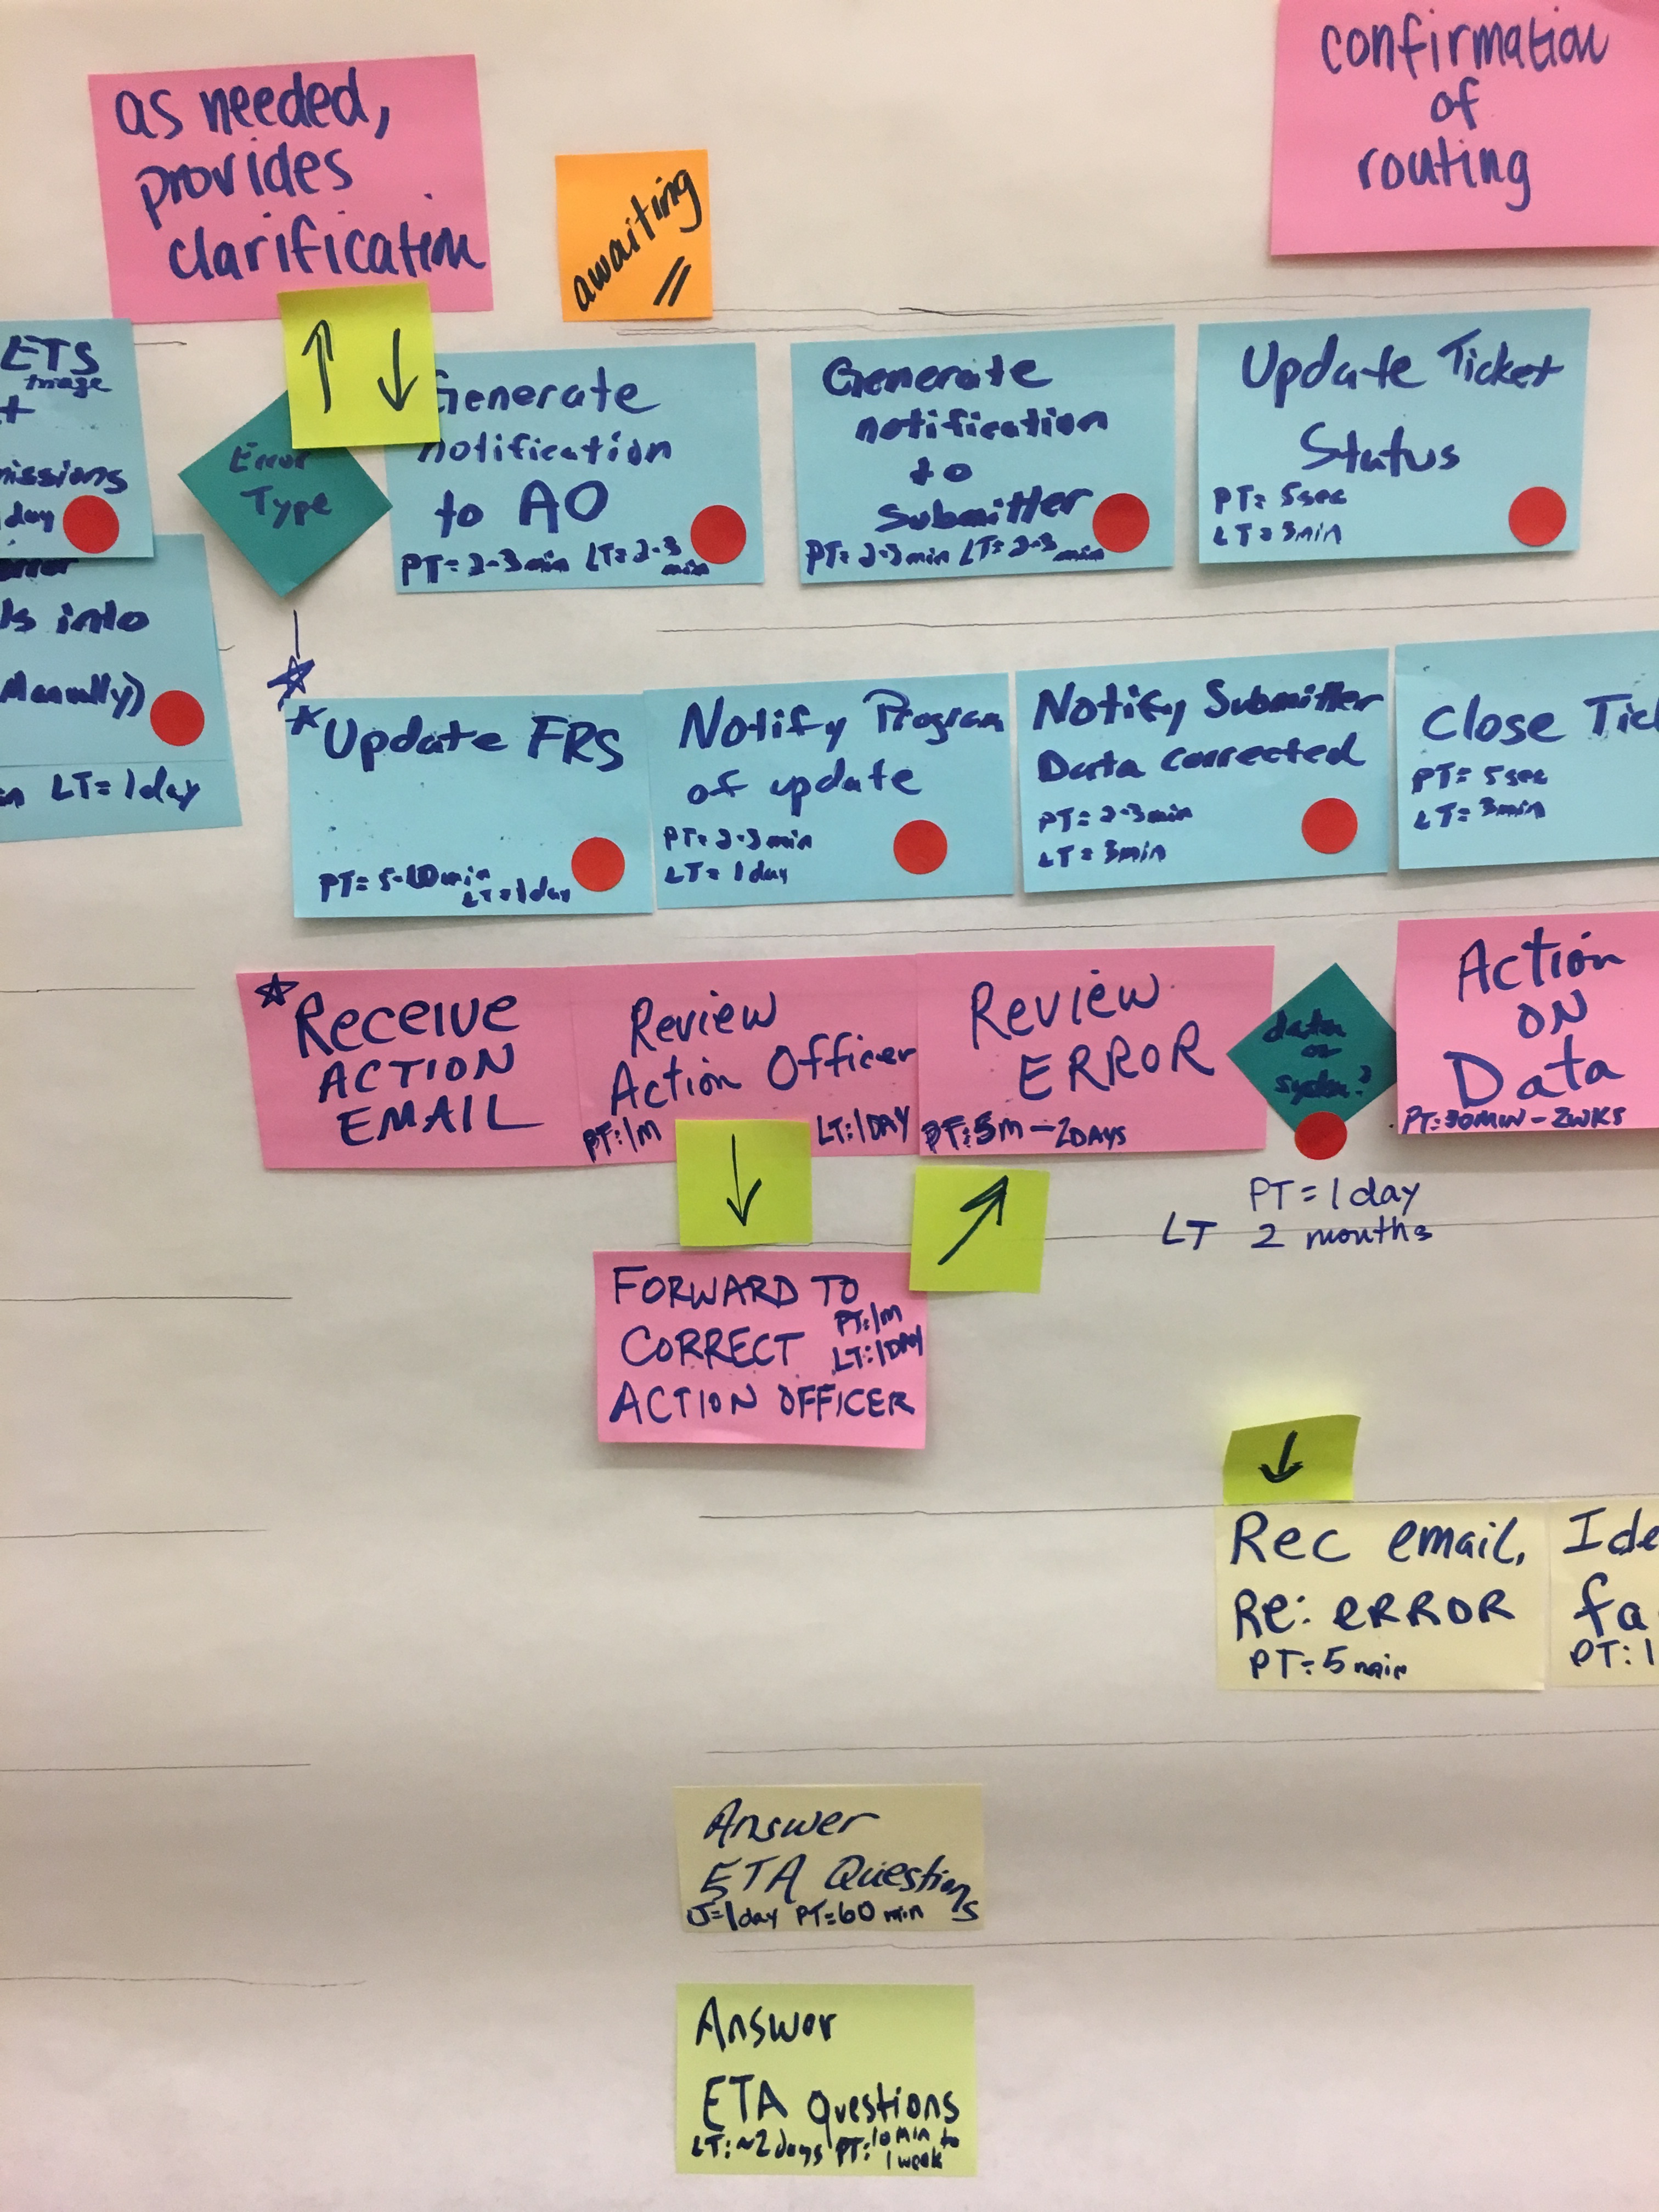 as needed,
provides
clarification
awaiting
confirmation
of
routing
ETS
triage
missions
day
Error
Type
Generate
notification
to AO
PT= 2-3min LT= 2-3
min
Generate
notification
to
Submitter
PT= 2-3min LT= 2-3
min
Update Ticket
Status
PT= 5sec
LT= 3min
ls into
Manually)
LT= 1day
*Update FRS
PT= 5-10min
LT=1day
Notify Program
of update
PT= 2-3min
LT= 1day
Notify Submitter
Data corrected
PT= 2-3min
LT= 3min
Close Tic
PT= 5sec
LT= 3min
Receive
ACTION
EMAIL
Review
Action Officer
PT:1M LT:1DAY
Review
ERROR
PT:5M-2DAYS
data
or
system?
Action
ON
Data
PT:30MIN-2WKS
PT=1day
LT 2 months
FORWARD TO
CORRECT
ACTION OFFICER
PT:1M
LT:1DAY
Rec email,
Re: ERROR
PT:5min
Ide
fa
PT:1
Answer
ETA Questions
LT=1day PT=60 min
Answer
ETA Questions
LT:~2days PT:10min to
1week